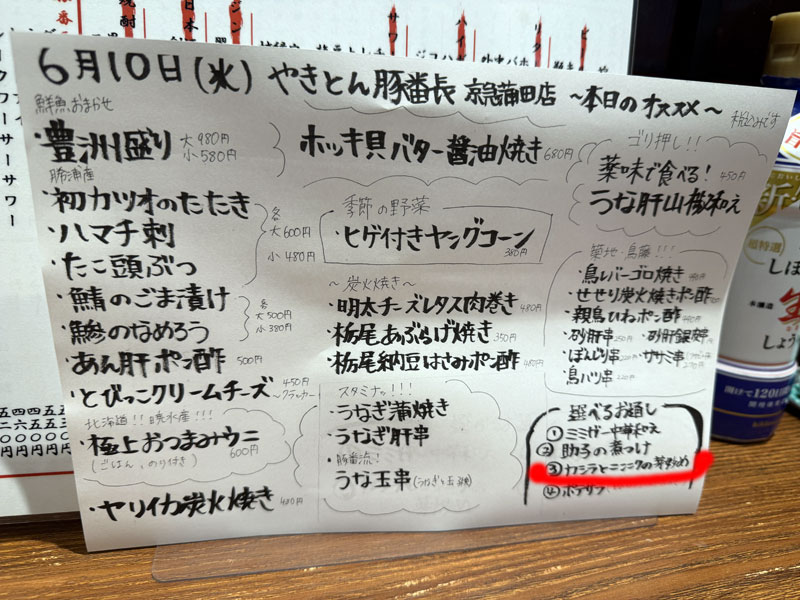 6月10日(水) やきとん豚番長 京急蒲田店 ～本日のオススメ～
税込みです
鮮魚おまかせ
・豊洲盛り 大980円 小580円
勝浦産
・初カツオのたたき
・ハマチ刺
・たこ頭ぶつ
各 大600円 小480円
・鯖のごま漬け
・鯵のなめろう
各 大500円 小380円
・あん肝ポン酢 500円
・とびっこクリームチーズ 450円 ～クラッカー
北海道!!
・極上おつまみウニ 600円
(ごはん、のり付き)
・ヤリイカ炭火焼き 480円
ホッキ貝バター醤油焼き 680円
季節の野菜
・ヒゲ付きヤングコーン 380円
～炭火焼き～
・明太チーズレタス肉巻き 480円
・栃尾あぶらげ焼き 350円
・栃尾納豆はさみポン酢
スタミナッ!!!
・うなぎ蒲焼き
・うなぎ肝串
・豚番流!
うな玉串
ゴリ押し!!
薬味で食べる! 450円
うな肝山椒和え
築地・鳥藤!!!
・鳥レバーゴロ焼き
・せせり炭火焼きポン酢
・親鳥ひねポン酢
・砂肝串 ・砂肝銀皮串
・ぼんじり串 ・ササミ串
・鳥ハツ串
選べるお通し
① ミミガー中華和え
② 助子の煮つけ
③ カシラとニンニクの芽炒め
④ ポテサラ
超特選
しぼ
生
しょう
本醸造
開けて120日